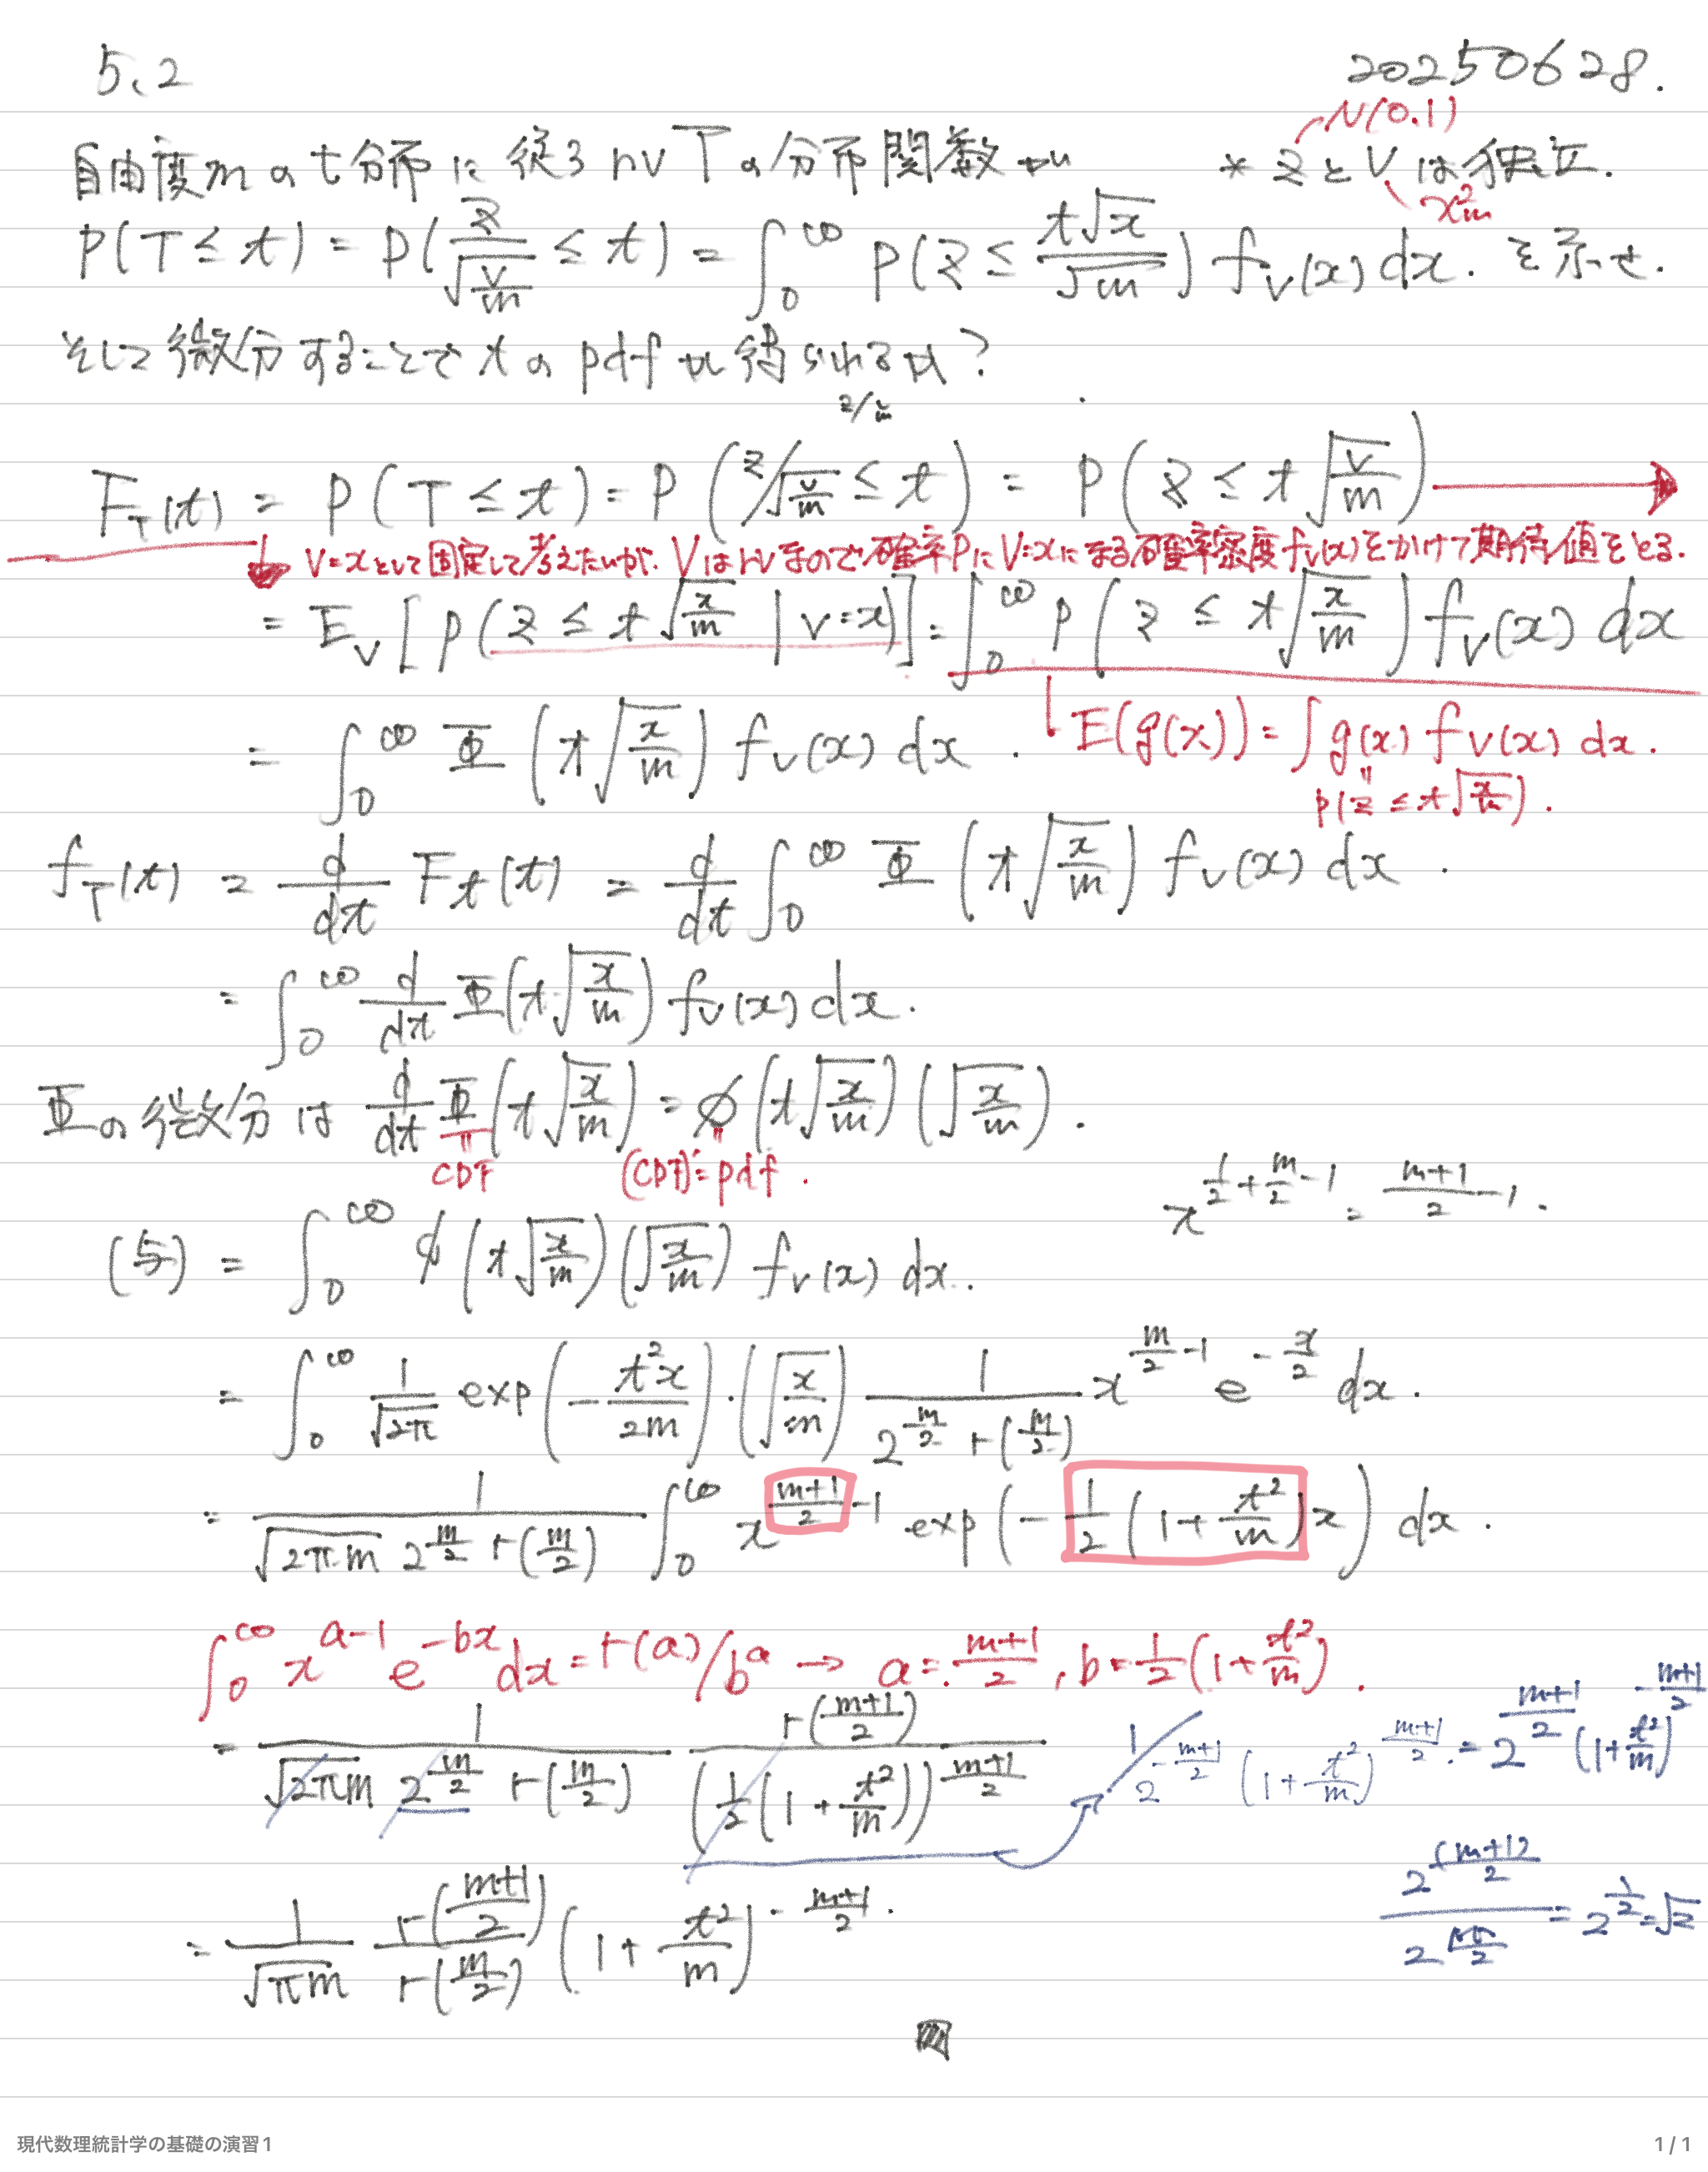 5.2
20250628.
自由度mのt分布に従うrv Tの分布関数が
* ZとVは独立.
N(0.1)
χ²m
P(T≤t) = P(Z/√(V/m) ≤ t) = ∫_0^∞ P(Z ≤ t√x/√m) f_V(x) dx. を示せ.
そして微分することでtのpdfが得られるか?
F_T(t) = P(T≤t) = P(Z/√(V/m) ≤ t) = P(Z ≤ t√(V/m))
V=xとして固定して考えたいが. Vはrvなので確率PにV=xになる確率密度f_V(x)をかけて期待値をとる.
= E_V[P(Z ≤ t√(x/m) | V=x)] = ∫_0^∞ P(Z ≤ t√(x/m)) f_V(x) dx
= ∫_0^∞ Φ(t√(x/m)) f_V(x) dx.
E(g(x)) = ∫ g(x) f_V(x) dx.
P(Z ≤ t√(x/m)).
f_T(t) = d/dt F_t(t) = d/dt ∫_0^∞ Φ(t√(x/m)) f_V(x) dx.
= ∫_0^∞ d/dt Φ(t√(x/m)) f_V(x) dx.
Φの微分は d/dt Φ(t√(x/m)) = φ(t√(x/m))(√(x/m)).
CDF
(CDF)'=pdf.
x^(1/2+m/2-1) = (m+1)/2 -1.
(与) = ∫_0^∞ φ(t√(x/m))(√(x/m)) f_V(x) dx.
= ∫_0^∞ 1/√(2π) exp(-t²x/2m)·(√(x/m)) 1/(2^(m/2) Γ(m/2)) x^(m/2 -1) e^(-x/2) dx.
= 1/(√(2πm) 2^(m/2) Γ(m/2)) ∫_0^∞ x^((m+1)/2 -1) exp(-1/2(1+t²/m)x) dx.
∫_0^∞ x^(a-1) e^(-bx) dx = Γ(a)/b^a → a = (m+1)/2, b = 1/2(1+t²/m).
= 1/(√(2πm) 2^(m/2) Γ(m/2)) Γ((m+1)/2)/(1/2(1+t²/m))^((m+1)/2)
1/2^(-(m+1)/2) (1+t²/m)^((m+1)/2). = 2^((m+1)/2) (1+t²/m)^(-(m+1)/2)
2^((m+1)/2)/2^(m/2) = 2^(1/2) = √2
= 1/√(πm) Γ((m+1)/2)/Γ(m/2) (1+t²/m)^(-(m+1)/2).
現代数理統計学の基礎の演習1
1 / 1